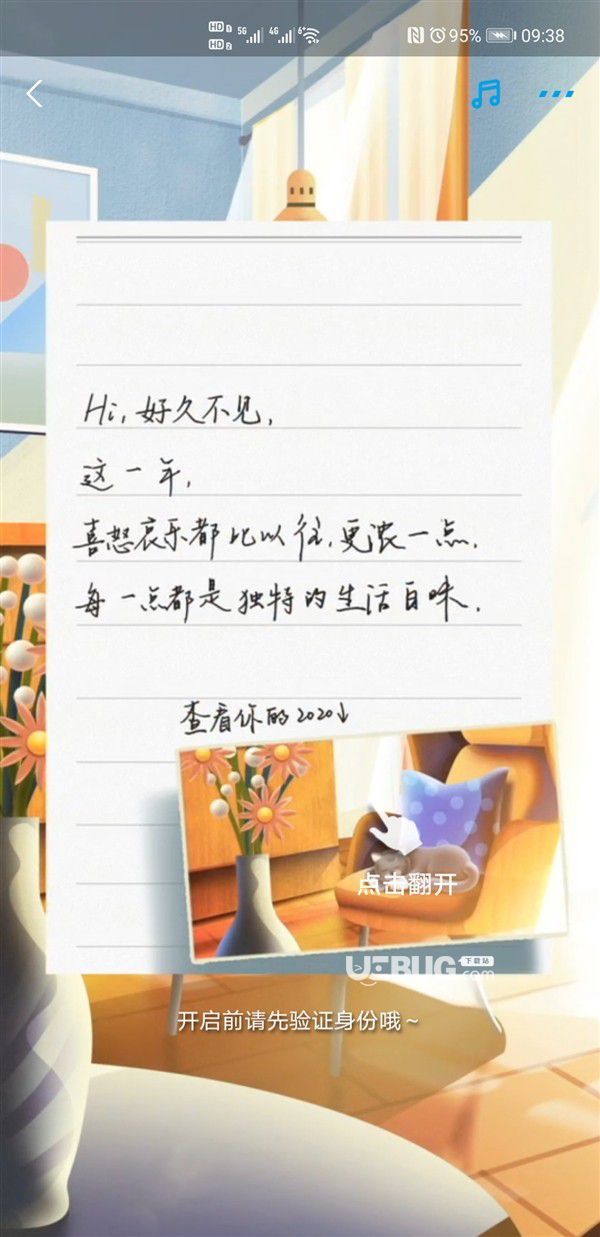 HD 1 5G 4G 6 95% 09:38
HD 2
Hi,好久不见,
这一年,
喜怒哀乐都比以往,更浓一点.
每一点都是独特的生活百味.
查看你的2020↓
点击翻开
UEBUG下载站.com
开启前请先验证身份哦~